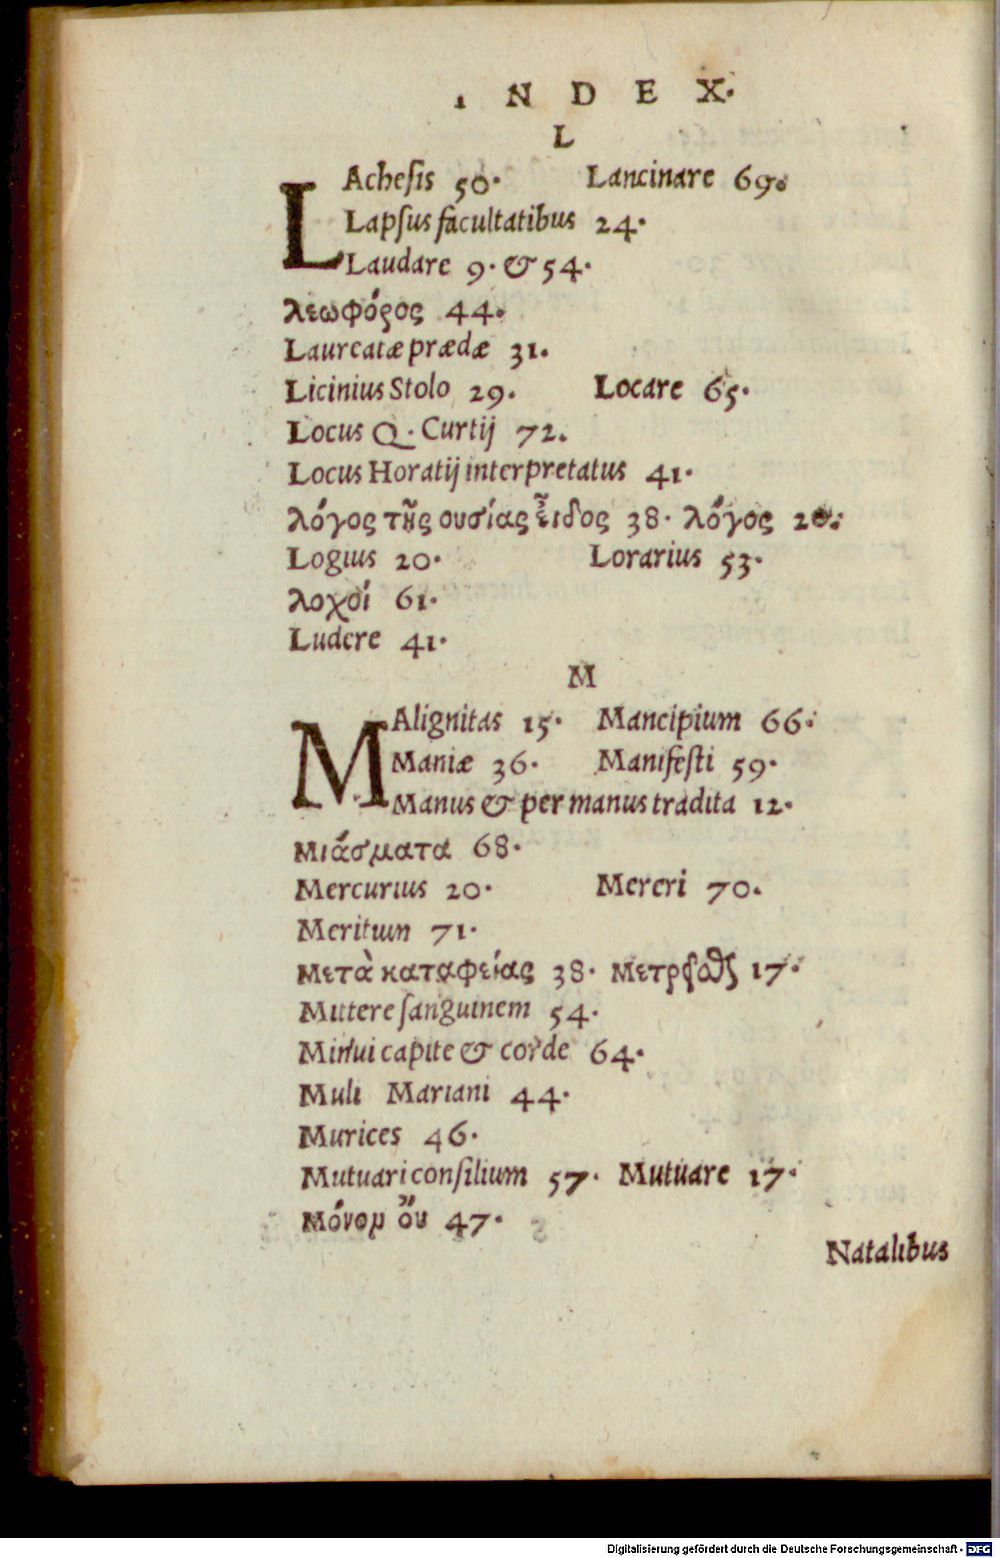 INDEX.
L
LAchesis 50. Lancinare 69.
Lapsus facultatibus 24.
Laudare 9. & 54.
λεωφόρος 44.
Laureatæ prædæ 31.
Licinius Stolo 29. Locare 65.
Locus Q. Curtij 72.
Locus Horatij interpretatus 41.
λόγος τῆς ουσίας εἶδος 38. λόγος 20.
Logius 20. Lorarius 53.
λοχοί 61.
Ludere 41.
M
MAlignitas 15. Mancipium 66.
Maniæ 36. Manifesti 59.
Manus & per manus tradita 12.
Μιάσματα 68.
Mercurius 20. Mereri 70.
Meritum 71.
Μετὰ καταφείας 38. 17.
Mittere sanguinem 54.
Minui capite & corde 64.
Muli Mariani 44.
Murices 46.
Mutuari consilium 57. Mutuare 17.
Μόνον οὔ 47.
Natalibus
Digitalisierung gefördert durch die Deutsche Forschungsgemeinschaft - DFG